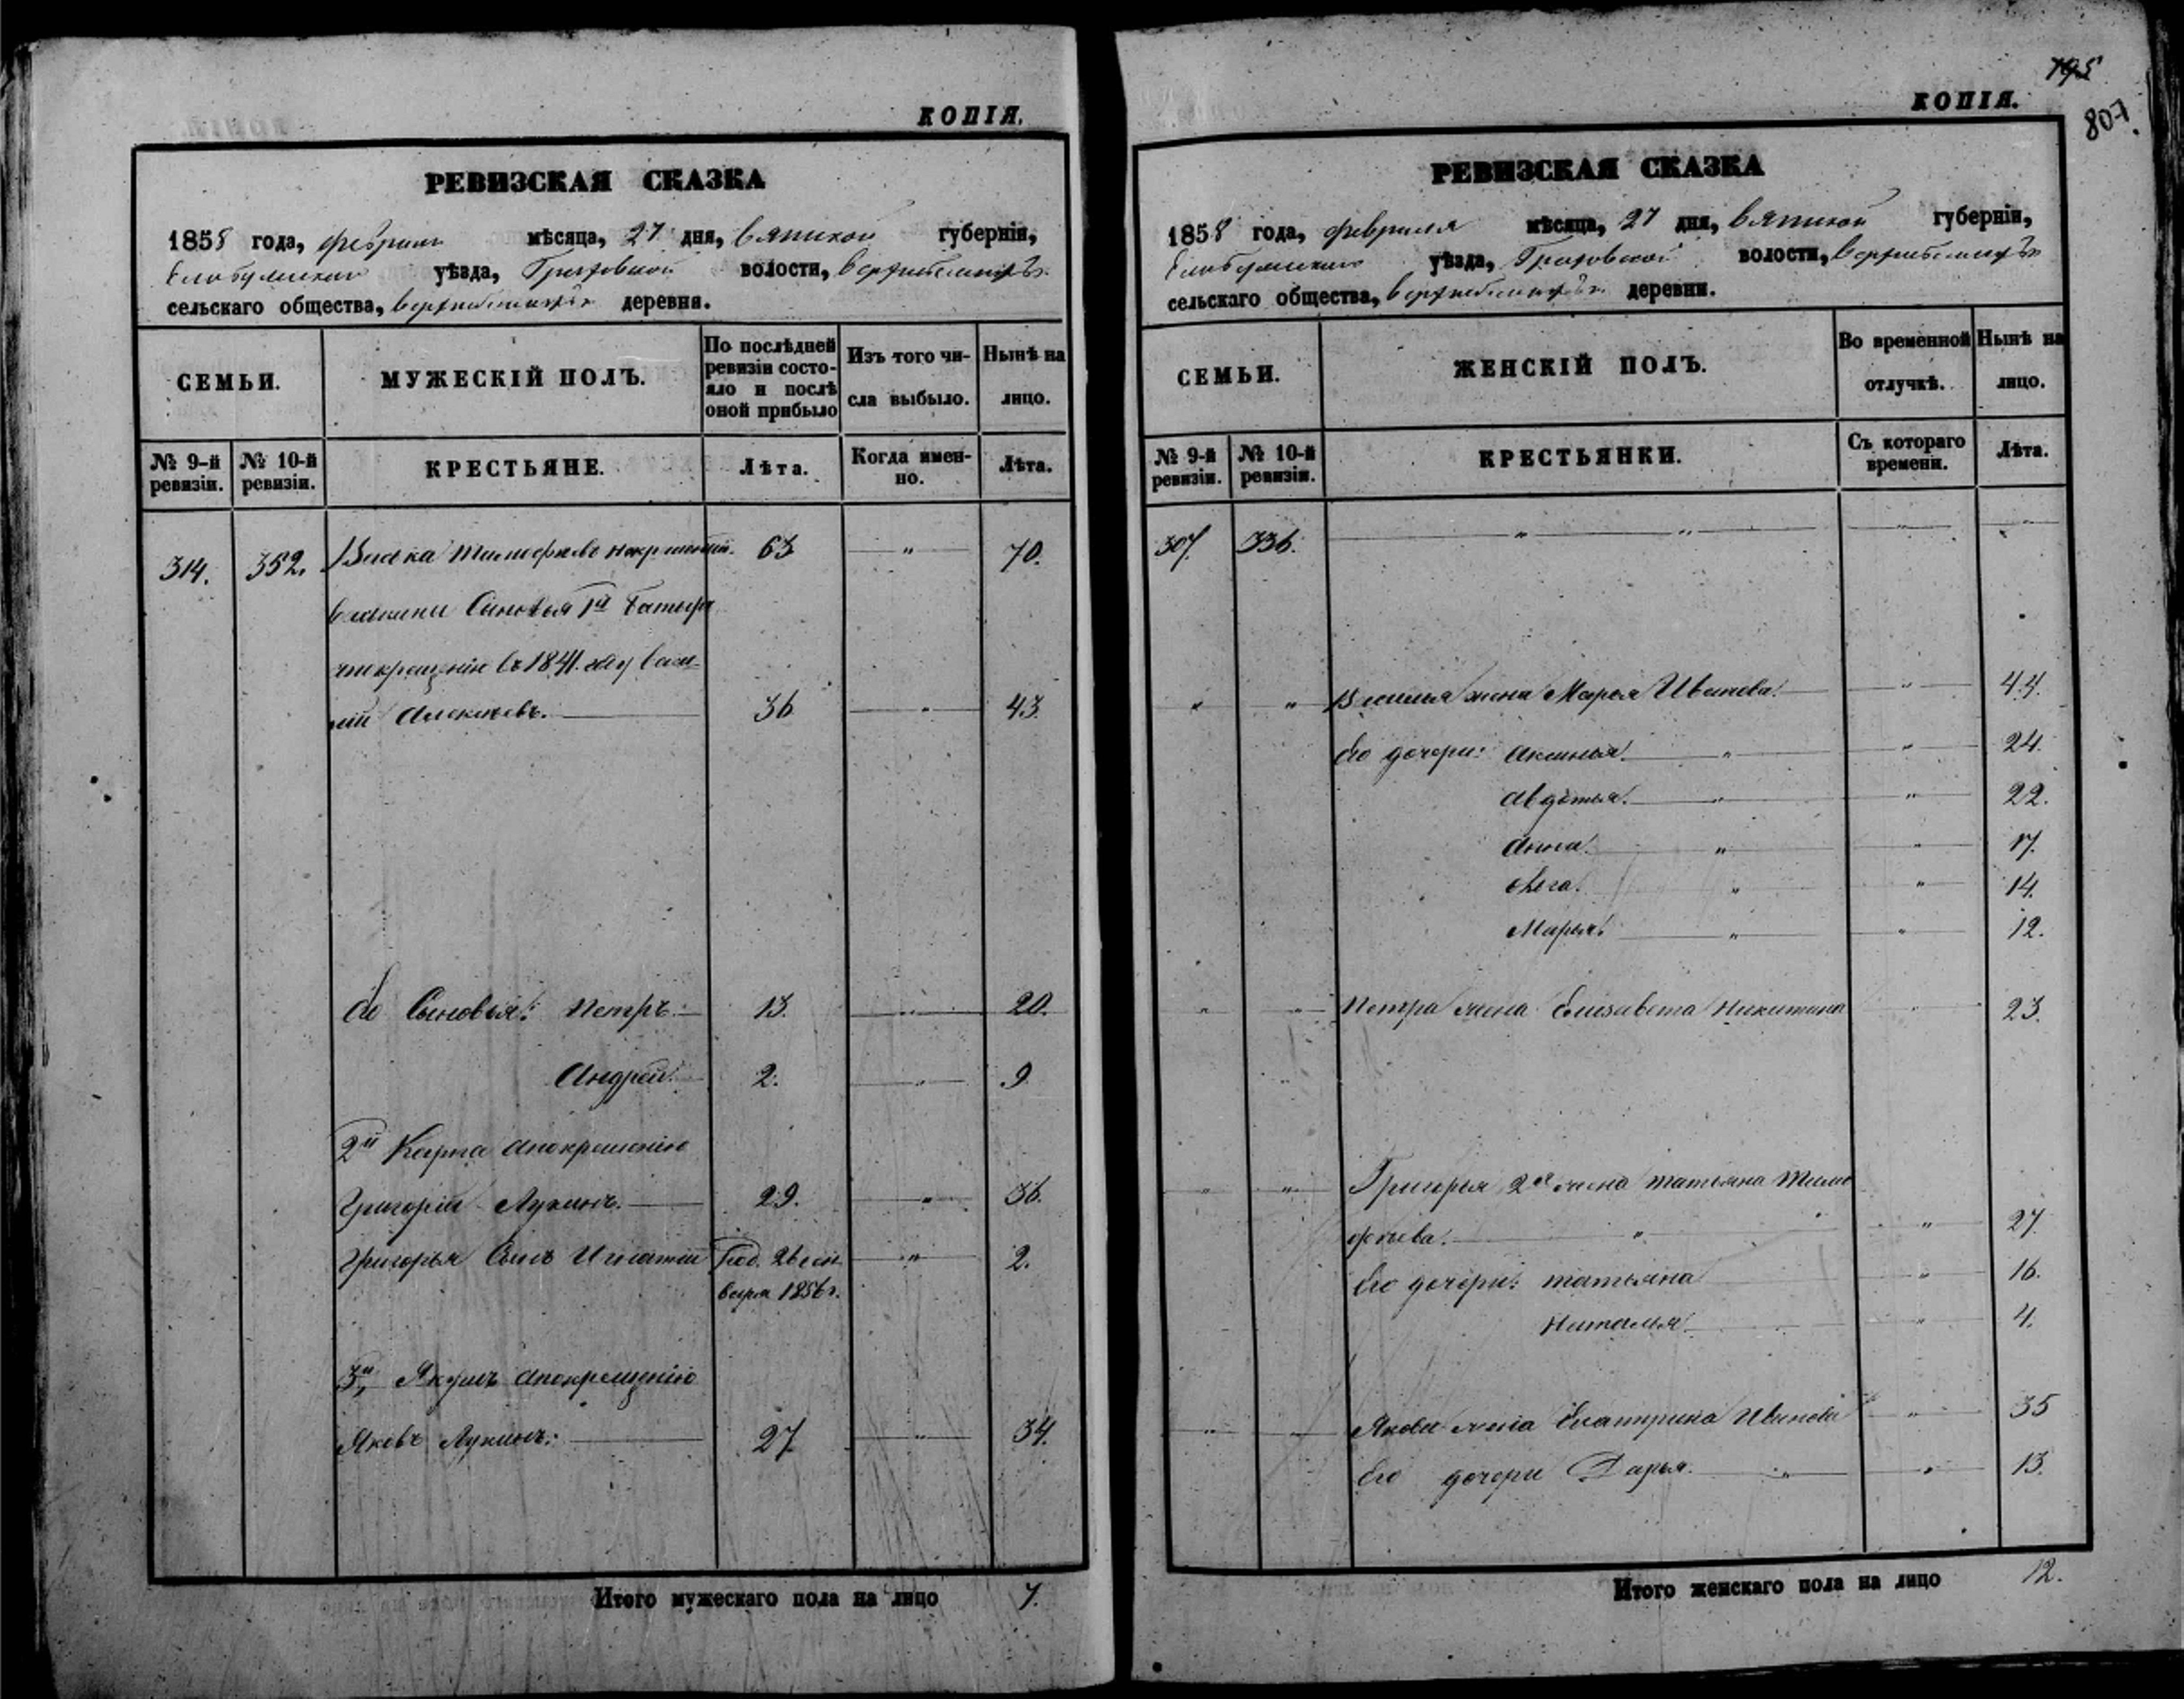 КОПІЯ.
РЕВИЗСКАЯ СКАЗКА
1858 года, февраля мѣсяца, 27 дня, Вятской губерніи,
Елабужскаго уѣзда, Граховской волости,
сельскаго общества, деревня.
СЕМЬИ.
МУЖЕСКІЙ ПОЛЪ.
По послѣдней ревизіи состо-
яло и послѣ оной прибыло
Изъ того чи-
сла выбыло.
Нынѣ на лицо.
№ 9-й ревизіи.
№ 10-й ревизіи.
КРЕСТЬЯНЕ.
Лѣта.
Когда имен-
но.
Лѣта.
314. 352. Тимофѣевъ 63 " 70.
Сыновья 1й
въ 1841. году Васи-
лій Алексѣевъ. 36 " 43.
Его Сыновья: Петръ. 13. " 20.
Андрей. 2. " 9
2й
Григорій Лукинъ. 29. " 36.
Григорья Сынъ Игнатій Род. 1856 г. " 2.
3й,
Яковъ Лукинъ. 27. " 34.
Итого мужескаго пола на лицо 7.
195
КОПІЯ.
807.
РЕВИЗСКАЯ СКАЗКА
1858 года, февраля мѣсяца, 27 дня, Вятской губерніи,
Елабужскаго уѣзда, Граховской волости,
сельскаго общества, деревни.
СЕМЬИ.
ЖЕНСКІЙ ПОЛЪ.
Во временной отлучкѣ.
Нынѣ на лицо.
№ 9-й ревизіи.
№ 10-й ревизіи.
КРЕСТЬЯНКИ.
Съ котораго времени.
Лѣта.
307. 336. " " " "
" " Василья жена Марья Иванова. " 44.
Его дочери: Аксинья. " " 24.
Авдотья. " " 22.
Анна. " " 17.
" " 14.
Марья. " " 12.
" " Петра жена Елизавета Никитина 23.
" " Григорья 2я жена Татьяна Тимо
феева. " " 27.
Его дочери: Татьяна " 16.
Наталья. " 4.
" Якова жена Екатерина Иванова " 35
Его дочери Дарья. " " 13.
Итого женскаго пола на лицо 12.